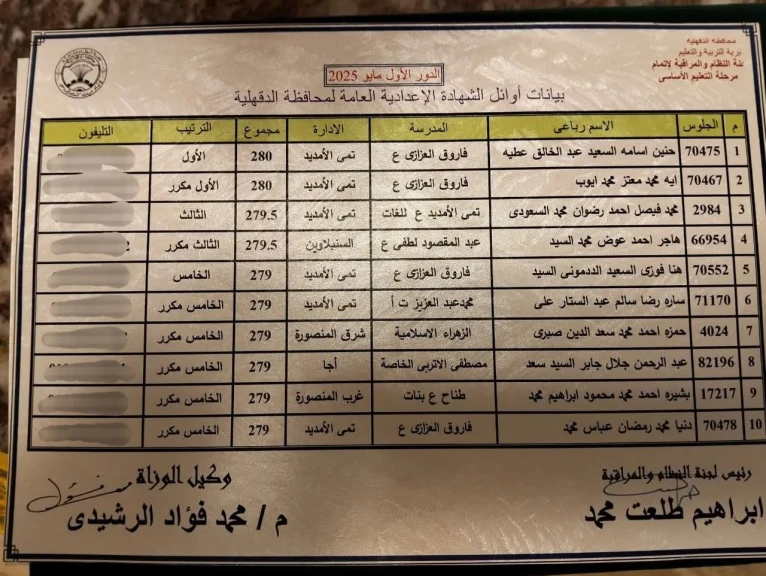 محافظة الدقهلية
يرية التربية والتعليم
نة النظام والمراقبة لاتمام
مرحلة التعليم الأساسى
الدور الأول مايو 2025
بيانات أوائل الشهادة الإعدادية العامة لمحافظة الدقهلية
م الجلوس الاسم رباعى المدرسة الادارة مجموع الترتيب التليفون
1 70475 حنين اسامه السعيد عبد الخالق عطيه فاروق العزازى ع تمى الأمديد 280 الأول
2 70467 ايه محمد معتز محمد ايوب فاروق العزازى ع تمى الأمديد 280 الأول مكرر
3 2984 محمد فيصل احمد رضوان محمد السعودى تمى الأمديد ع للغات تمى الأمديد 279.5 الثالث
4 66954 هاجر احمد عوض محمد السيد عبد المقصود لطفى ع السنبلاوين 279.5 الثالث مكرر 2
5 70552 هنا فوزى السعيد الددمونى السيد فاروق العزازى ع تمى الأمديد 279 الخامس
6 71170 ساره رضا سالم عبد الستار على محمدعبد العزيز ت أ تمى الأمديد 279 الخامس مكرر
7 4024 حمزه احمد محمد سعد الدين صبرى الزهراء الاسلامية شرق المنصورة 279 الخامس مكرر
8 82196 عبد الرحمن جلال جابر السيد سعد مصطفى الاتربى الخاصة أجا 279 الخامس مكرر
9 17217 بشيره احمد محمد محمود ابراهيم محمد طناح ع بنات غرب المنصورة 279 الخامس مكرر
10 70478 دنيا محمد رمضان عباس محمد فاروق العزازى ع تمى الأمديد 279 الخامس مكرر
رئيس لجنة النظام والمراقبة وكيل الوزاة
ابراهيم طلعت محمد م / محمد فؤاد الرشيدى